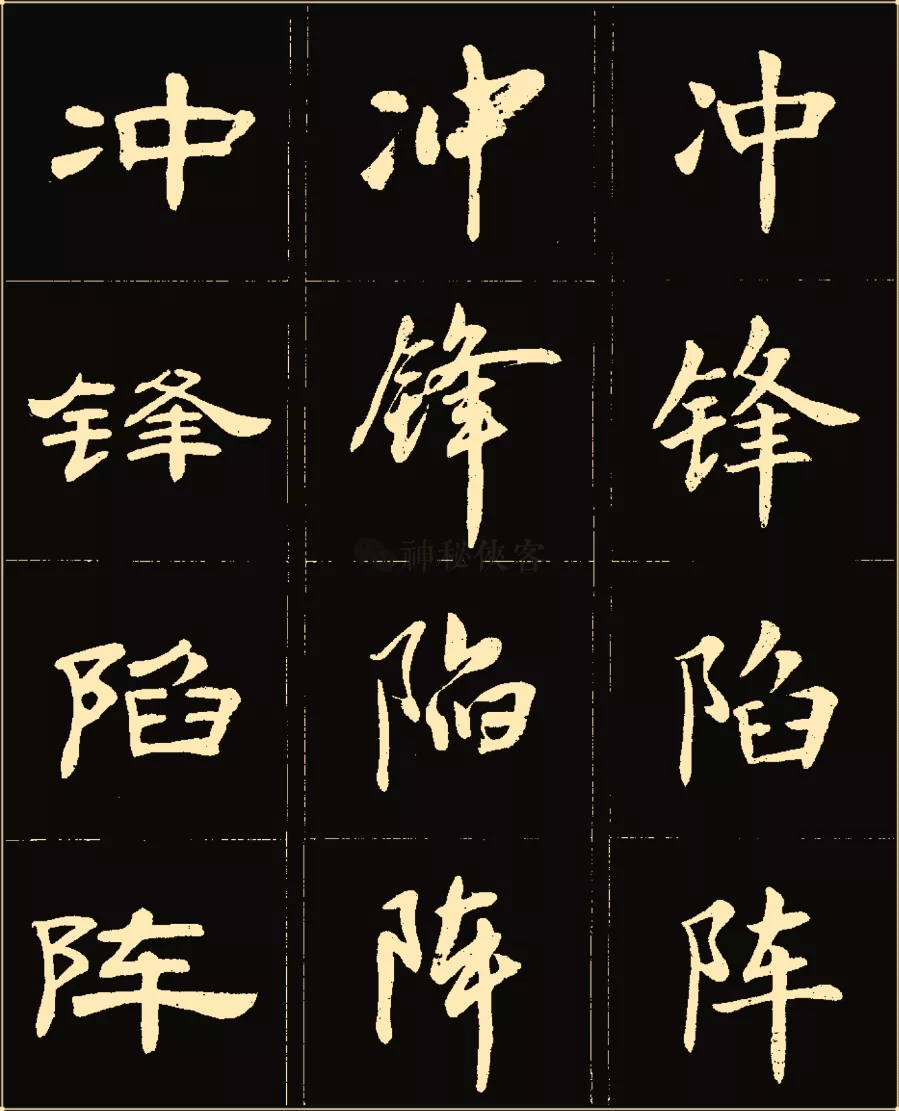 冲 冲 冲
锋 锋 锋
神秘侠客
陷 陷 陷
阵 阵 阵